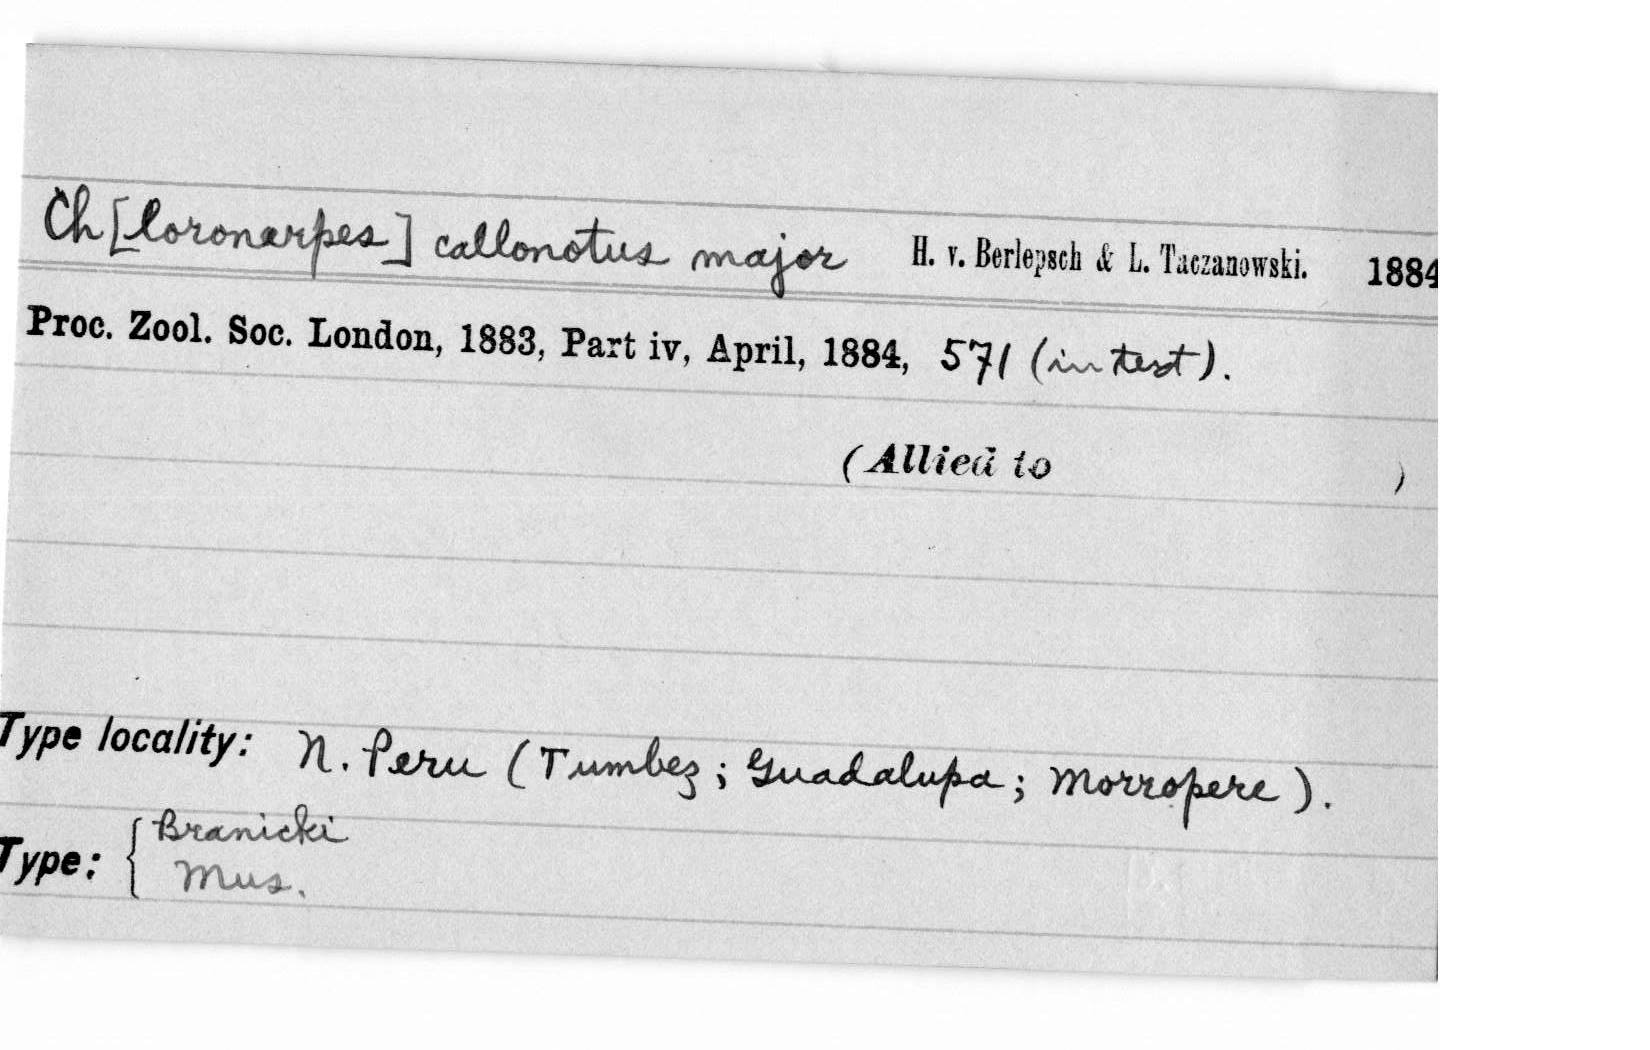 Ch[loronerpes] callonotus major H. v. Berlepsch & L. Taczanowski. 1884
Proc. Zool. Soc. London, 1883, Part iv, April, 1884, 571 (in text).
(Allied to )
Type locality: N. Peru (Tumbez; Guadalupa; Morropere).
Type: { Branicki
Mus.